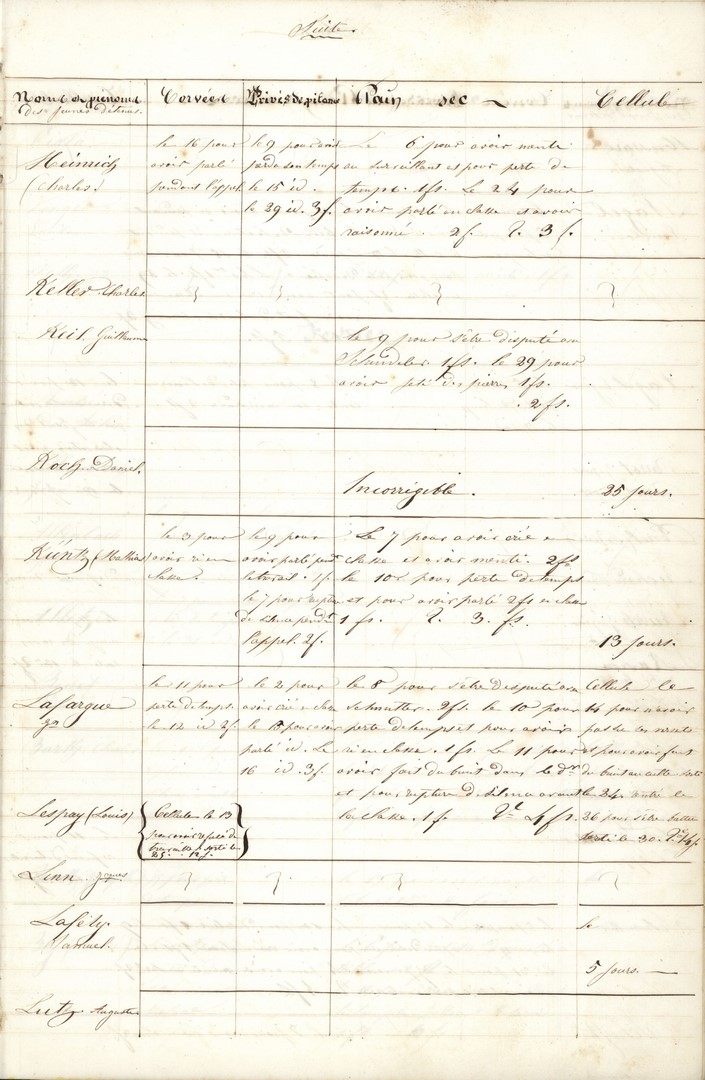 Suite
Noms et prénoms
des jeunes détenus.
Corvées
Privés de pitance
Pain sec
Cellule
Heinrich
(Charles.)
le 16 pour
avoir parlé
pendant l'appel
le 9 pour avoir
perdu son temps
le 15 id.
le 29 id. 3f.
Le 6 pour avoir menti
au surveillant et pour perte de
temps. 1fs. Le 24 pour
avoir parlé en classe et avoir
raisonné. 2f. T. 3 f.
Keller Charles
Keil Guillaume
le 9 pour s'être disputé avec
1fs. le 29 pour
avoir jeté des pierres 1fs.
2 fs.
Koch Daniel.
Incorrigible.
25 jours.
Küntz (Mathias)
le 3 pour
avoir ri en
classe.
le 9 pour
avoir parlé pendt
le travail. 1f.
le 7 pour rupture
de silence pendt
l'appel. 2f.
Le 7 pour avoir crié en
classe et avoir menti. 2fs
le 10 pour perte de temps
et pour avoir parlé 2fs en classe
1 fs. T. 3. fs.
13 jours.
Lafargue
le 11 pour
perte de temps.
le 12 id 2f.
le 2 pour
avoir crié en classe
le 15 pour avoir
parlé id. Le
16 id. 3f.
le 8 pour s'être disputé avec
2fs. le 10 pour
perte de temps et pour avoir
ri en classe. 1fs. Le 11 pour
avoir fait du bruit dans le dr
et pour rupture de silence avant
la classe. 1fs Tl 4 fs.
Cellule le
14 pour avoir
et pour avoir fait
du bruit en cellule sorti
le 24. entré le
26 pour s'être battu
sorti le 30. Tl 14 j.
Lespay (Louis)
Cellule le 13
pour avoir refusé de
travailler sorti le
25. 12 j.
Linn Jques
Laféty
Samuel.
5 jours.
Lutz Auguste